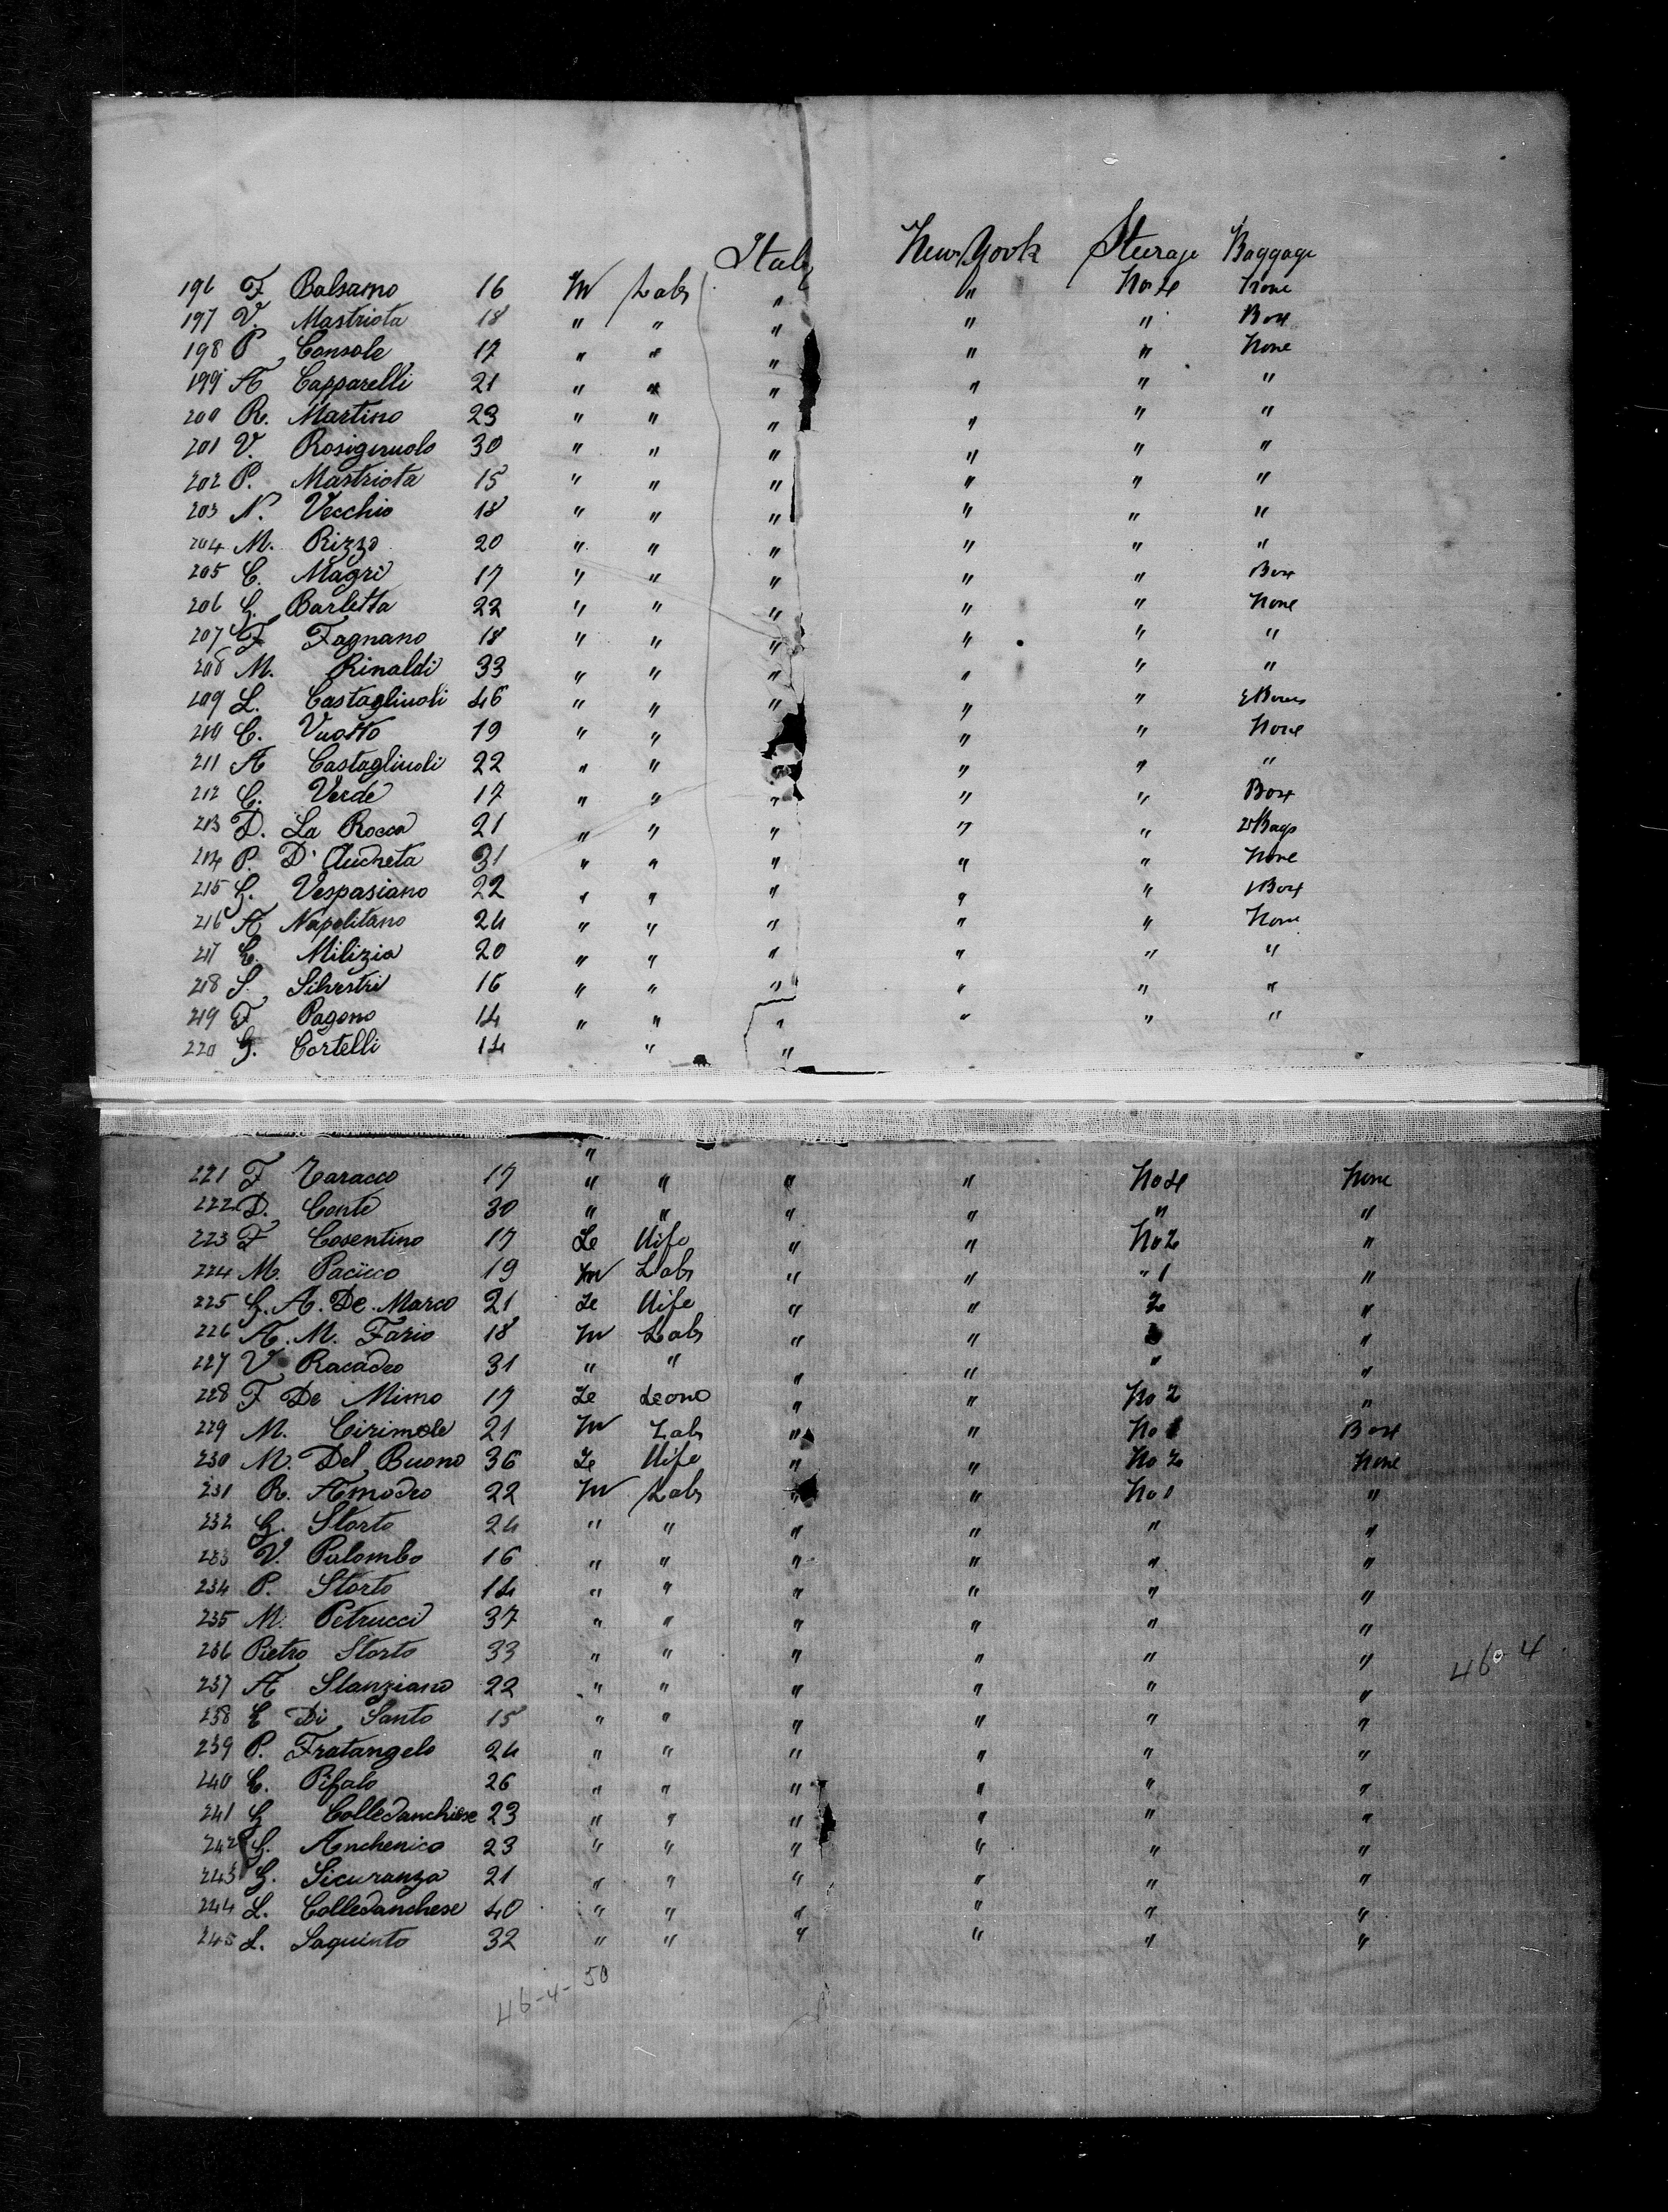 Italy New York Steerage Baggage
196 F Balsamo 16 M Labr " " No 4 None
197 V. Mastriota 18 " " " " " Box
198 P Console 17 " " " " " None
199 A Capparelli 21 " " " " " "
200 R. Martino 23 " " " " " "
201 V. Rosignuolo 30 " " " " " "
202 P. Mastriota 15 " " " " " "
203 N. Vecchio 18 " " " " " "
204 M. Rizzo 20 " " " " " "
205 C. Magri 17 " " " " " Box
206 G. Barletta 22 " " " " " None
207 F Fagnano 18 " " " " " "
208 M. Rinaldi 33 " " " " " "
209 L. Castagliuoli 46 " " " " "
210 C. Vuotto 19 " " " " " None
211 A Castagliuoli 22 " " " " " "
212 C. Verde 17 " " " " " Box
213 D. La Rocca 21 " " " " " 2 Bags
214 P. 31 " " " " " None
215 G. Vespasiano 22 " " " " " 1 Box
216 A Napolitano 24 " " " " " None
217 C. Milizia 20 " " " " " "
218 S. Silvestri 16 " " " " " "
219 F. Pagono 14 " " " " " "
220 G. Cortelli 14 " "
"
221 F Taracco 17 " " " " No 4 None
222 D. Conte 30 " " " " " "
223 F Cosentino 17 Fe Wife " " No 2 "
224 M. Paciico 19 M Labr " " " 1 "
225 G. A. De Marco 21 Fe Wife " " 2 "
226 A. M. Fario 18 M Labr " " "
227 V Racadeo 31 " " " " " "
228 F De Mimo 17 Fe " " No 2 "
229 M. Cirimele 21 M Labr " " No 1 Box
230 M. Del Buono 36 Fe Wife " " No 2 None
231 R. Amodeo 22 M Labr " " No 1 "
232 G. Storto 24 " " " " " "
233 V. Palombo 16 " " " " " "
234 P. Storto 14 " " " " " "
235 M. Petrucci 37 " " " " " "
236 Pietro Storto 33 " " " " " "
46-4
237 A Stanziano 22 " " " " " "
238 E Di Santo 15 " " " " " "
239 P. Fratangelo 24 " " " " " "
240 C. Pifalo 26 " " " " " "
241 G Colledanchise 23 " " " " " "
242 G. Anchenico 23 " " " " " "
243 G. Sicuranza 21 " " " " " "
244 L. Colledanchese 40 " " " " " "
245 L. Saquinto 32 " " " " " "
46-4-50